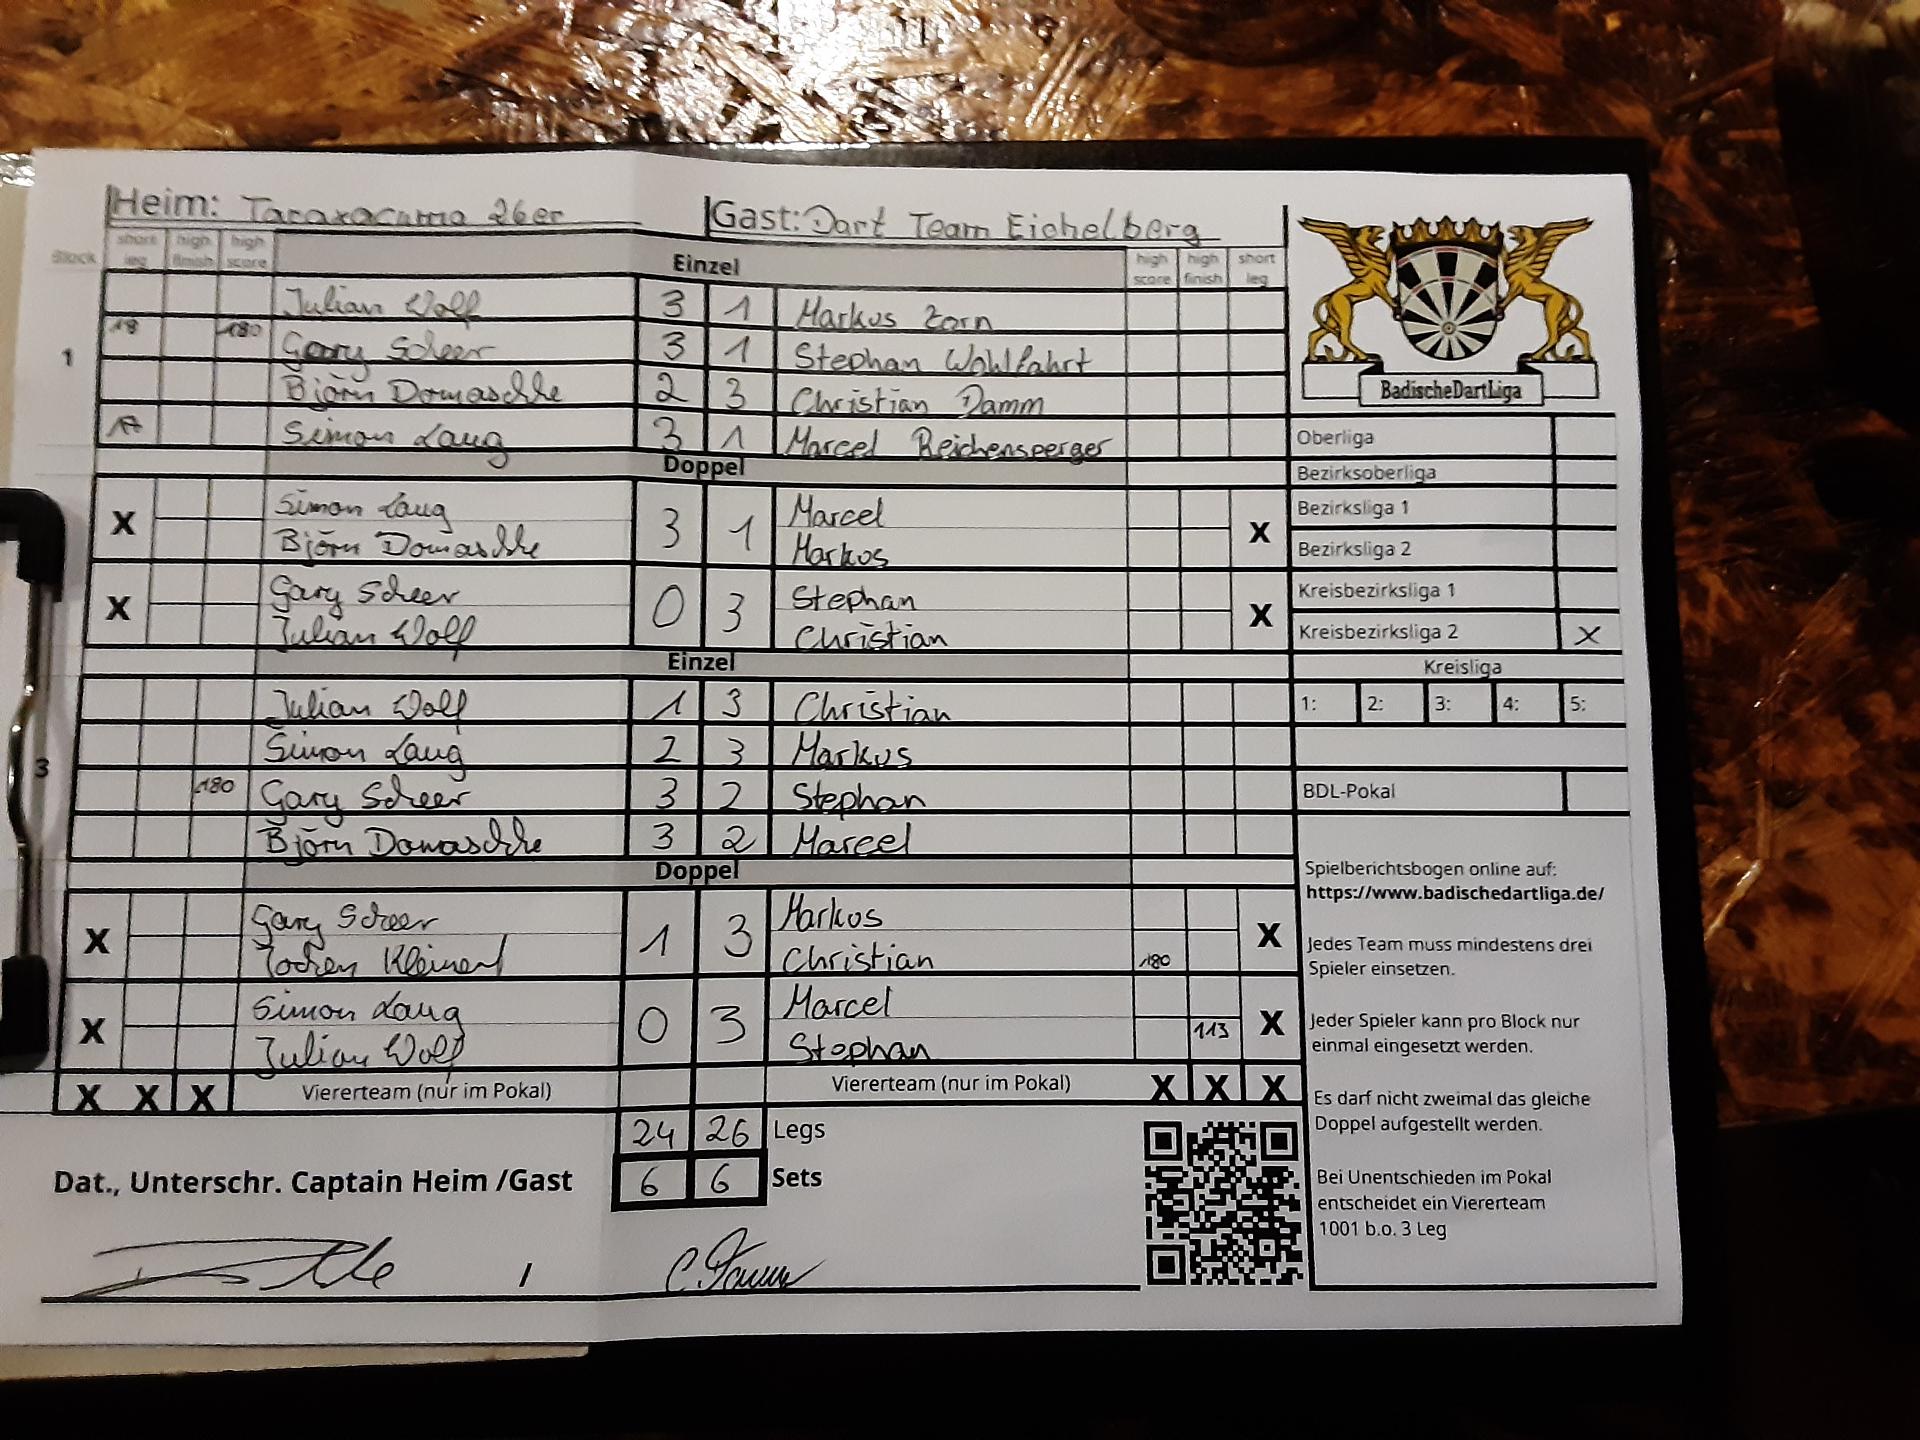 Heim: Taraxacuma 26er Gast: Dart Team Eichelberg
Block short leg high finish high score Einzel high score high finish short leg
Julian Wolf 3 1 Markus Zorn
1 18 180 Gary Scheer 3 1 Stephan Wohlfahrt
Björn Domaschke 2 3 Christian Damm
17 Simon Laug 3 1 Marcel Reichensperger
Doppel
X Simon Laug 3 1 Marcel X
Björn Domaschke Markus
X Gary Scheer 0 3 Stephan X
Julian Wolf Christian
Einzel
Julian Wolf 1 3 Christian
Simon Laug 2 3 Markus
3 180 Gary Scheer 3 2 Stephan
Björn Domaschke 3 2 Marcel
Doppel
X Gary Scheer 1 3 Markus X
Jochen Christian 180
X Simon Laug 0 3 Marcel X
Julian Wolf Stephan 113
X X X Viererteam (nur im Pokal) Viererteam (nur im Pokal) X X X
24 26 Legs
6 6 Sets
Dat., Unterschr. Captain Heim /Gast
/
BadischeDartLiga
Oberliga
Bezirksoberliga
Bezirksliga 1
Bezirksliga 2
Kreisbezirksliga 1
Kreisbezirksliga 2 X
Kreisliga
1: 2: 3: 4: 5:
BDL-Pokal
Spielberichtsbogen online auf:
https://www.badischedartliga.de/
Jedes Team muss mindestens drei
Spieler einsetzen.
Jeder Spieler kann pro Block nur
einmal eingesetzt werden.
Es darf nicht zweimal das gleiche
Doppel aufgestellt werden.
Bei Unentschieden im Pokal
entscheidet ein Viererteam
1001 b.o. 3 Leg